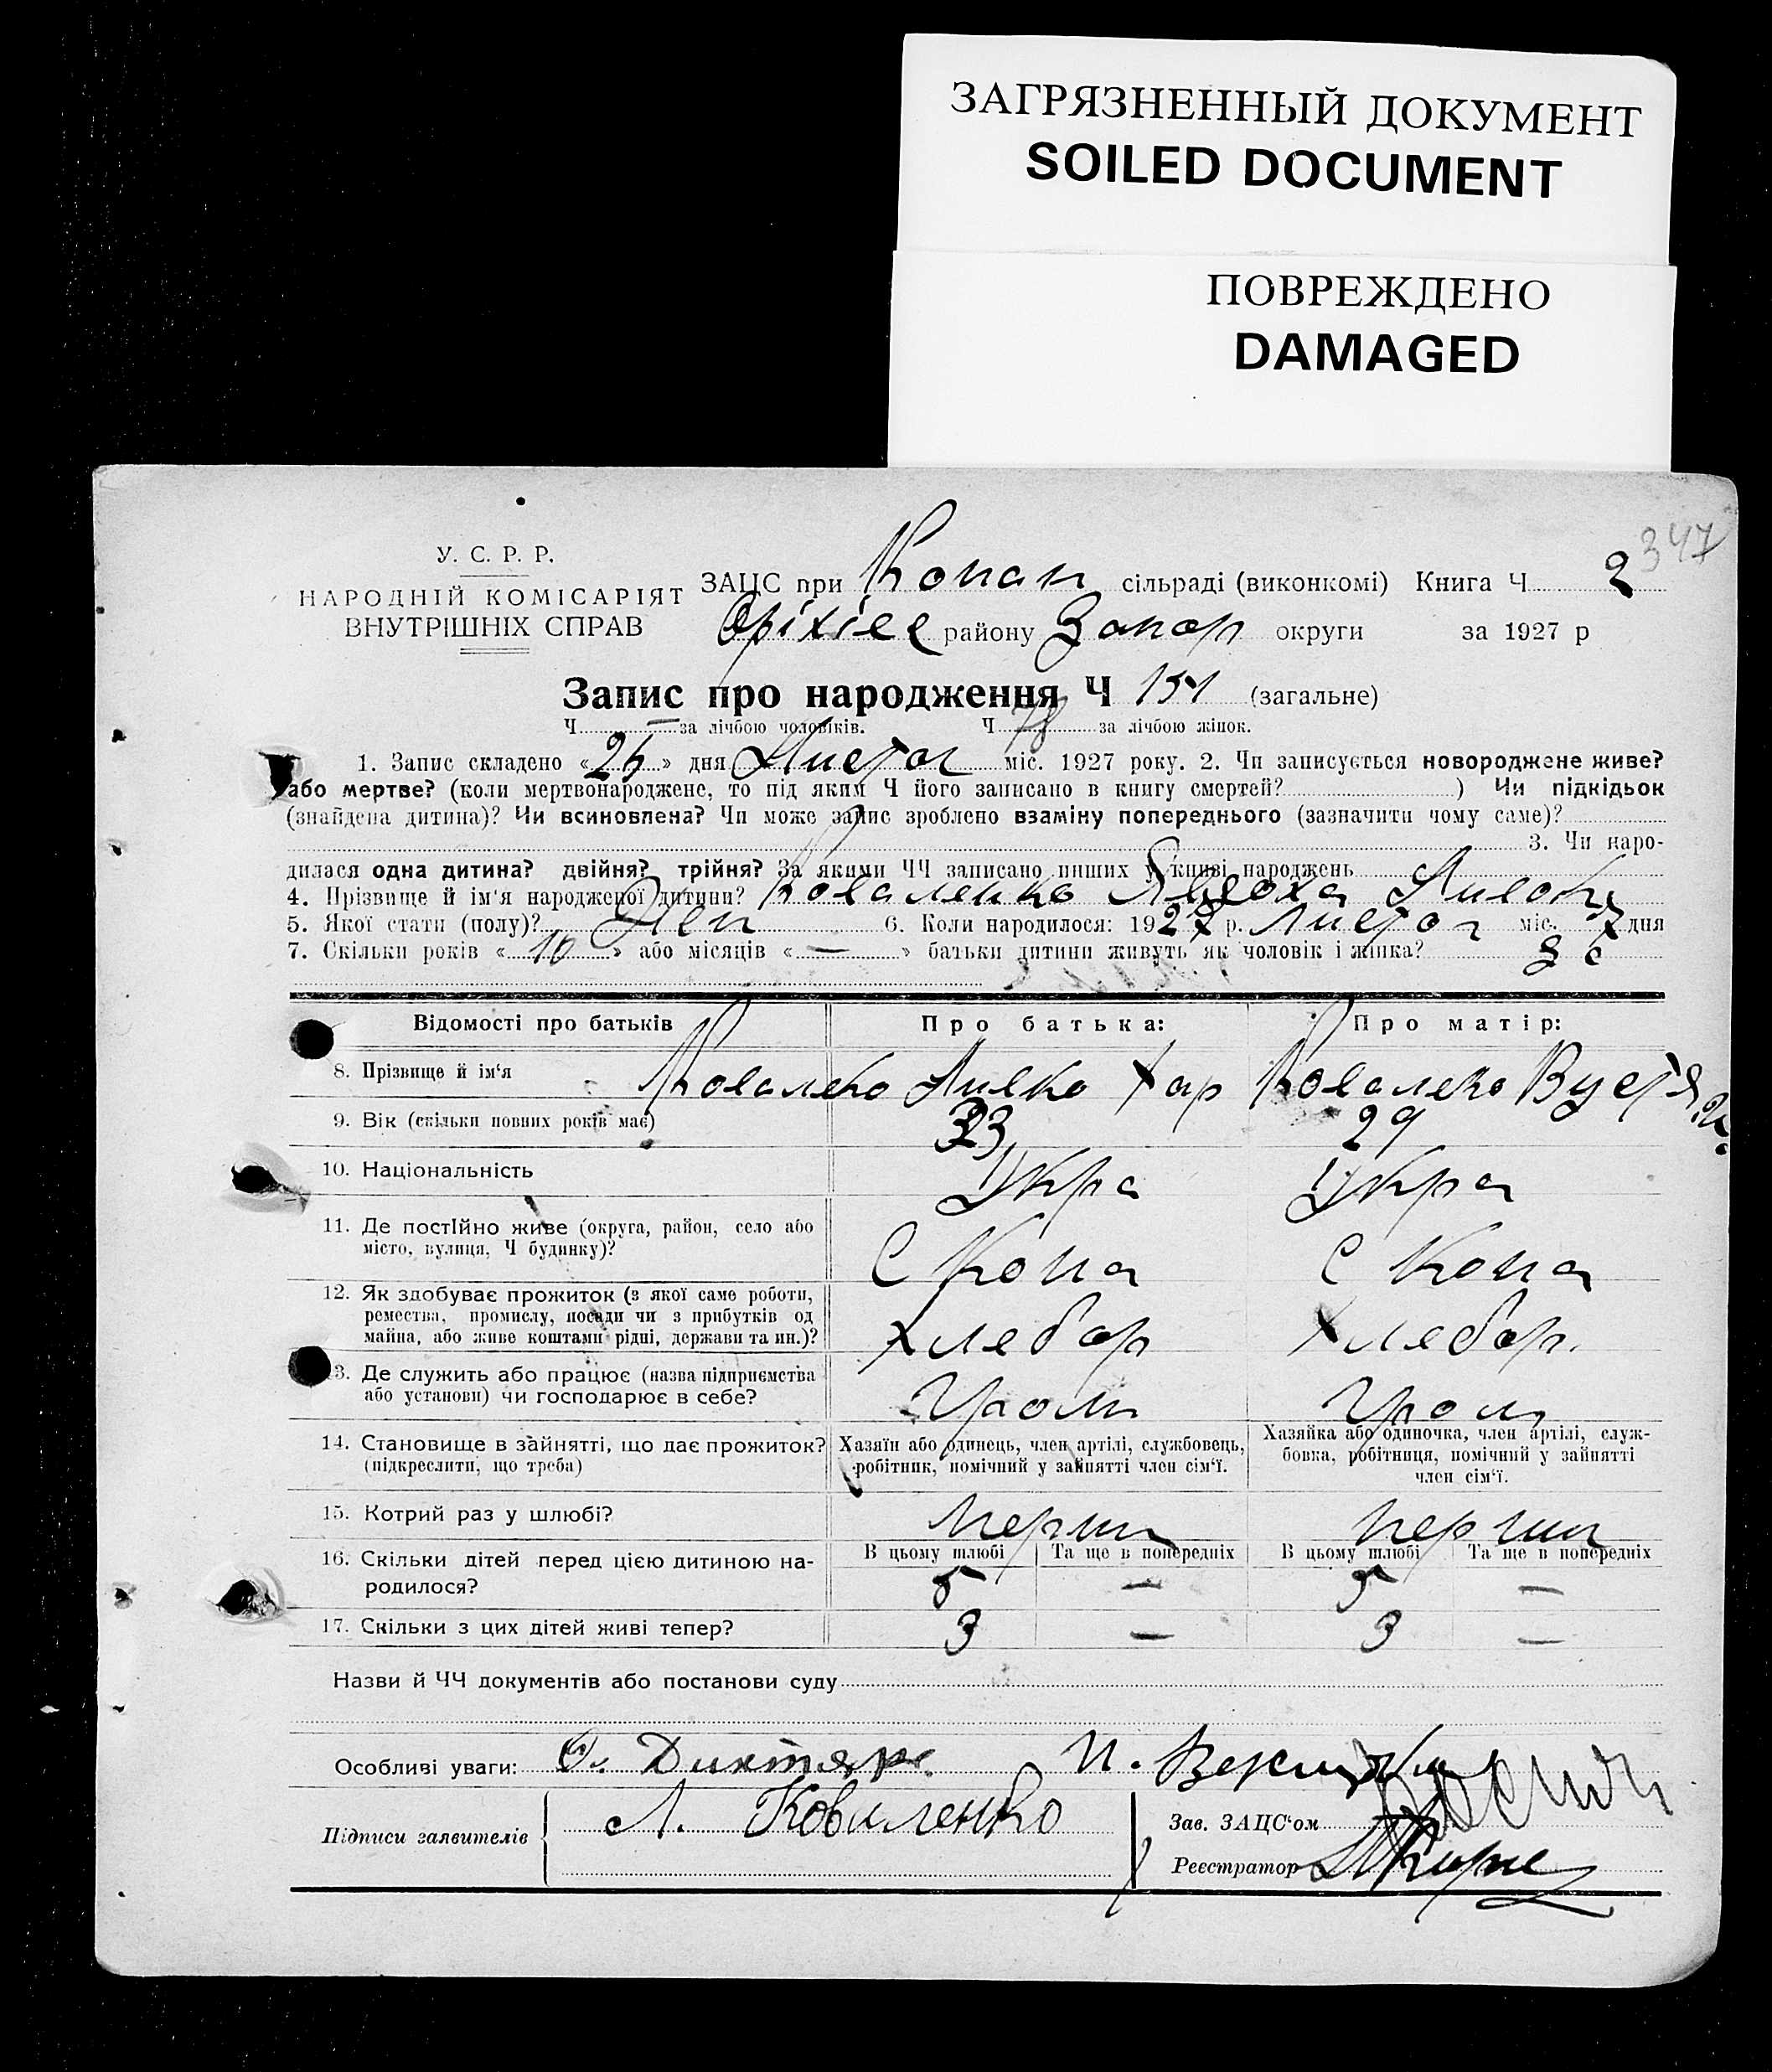 ЗАГРЯЗНЕННЫЙ ДОКУМЕНТ
SOILED DOCUMENT
ПОВРЕЖДЕНО
DAMAGED
347
У. С. Р. Р.
НАРОДНІЙ КОМІСАРІЯТ
ВНУТРІШНІХ СПРАВ
ЗАЦС при Копан сільраді (виконкомі) Книга Ч 2
Оріхівс району Запор округи за 1927 р
Запис про народження Ч 151 (загальне)
Ч — за лічбою чоловіків. Ч 78 за лічбою жінок.
1. Запис складено « 25 » дня Листоп міс. 1927 року. 2. Чи записується новороджене живе?
або мертве? (коли мертвонароджене, то під яким Ч його записано в книгу смертей? ) Чи підкідьок
(знайдена дитина)? Чи всиновлена? Чи може запис зроблено взаміну попереднього (зазначити чому саме)?
3. Чи наро-
дилася одна дитина? двійня? трійня? За якими ЧЧ записано инших у книзі народжень
4. Прізвище й ім'я народженої дитини? Коваленко Явдоха
5. Якої стати (полу)? Жен 6. Коли народилося: 1927 р. Листоп міс. 7 дня
7. Скільки років « 10 » або місяців « — » батьки дитини живуть як чоловік і жінка?
Відомості про батьків Про батька: Про матір:
8. Прізвище й ім'я Коваленко Ливко Хар Коваленко Вустя
9. Вік (скільки повних років має) 33 29
10. Національність Укра Укра
11. Де постійно живе (округа, район, село або С Копа С Копа
місто, вулиця, Ч будинку)?
12. Як здобуває прожиток (з якої саме роботи,
ремества, промислу, посади чи з прибутків од
майна, або живе коштами рідні, держави та ин.)? Хлебор Хлебор.
3. Де служить або працює (назва підприємства
або установи) чи господарює в себе?
14. Становище в зайнятті, що дає прожиток? Хазяїн або одинець, член артілі, службовець, Хазяйка або одиночка, член артілі, служ-
(підкреслити, що треба) робітник, помічний у зайнятті член сім'ї. бовка, робітниця, помічний у зайнятті
член сім'ї.
15. Котрий раз у шлюбі? перши перши
16. Скільки дітей перед цією дитиною на- В цьому шлюбі Та ще в попередніх В цьому шлюбі Та ще в попередніх
родилося? 5 — 5 —
17. Скільки з цих дітей живі тепер? 3 — 3 —
Назви й ЧЧ документів або постанови суду
Особливі уваги: О. Дихтяр. И.
Підписи заявителів Л. Коваленко Зав. ЗАЦС'ом
Реєстратор